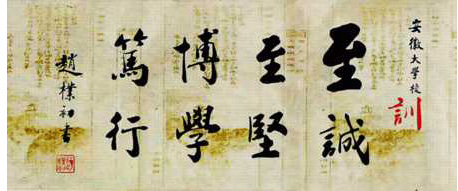 安徽大學校
訓
至誠
至堅
博學
篤行
趙樸初書